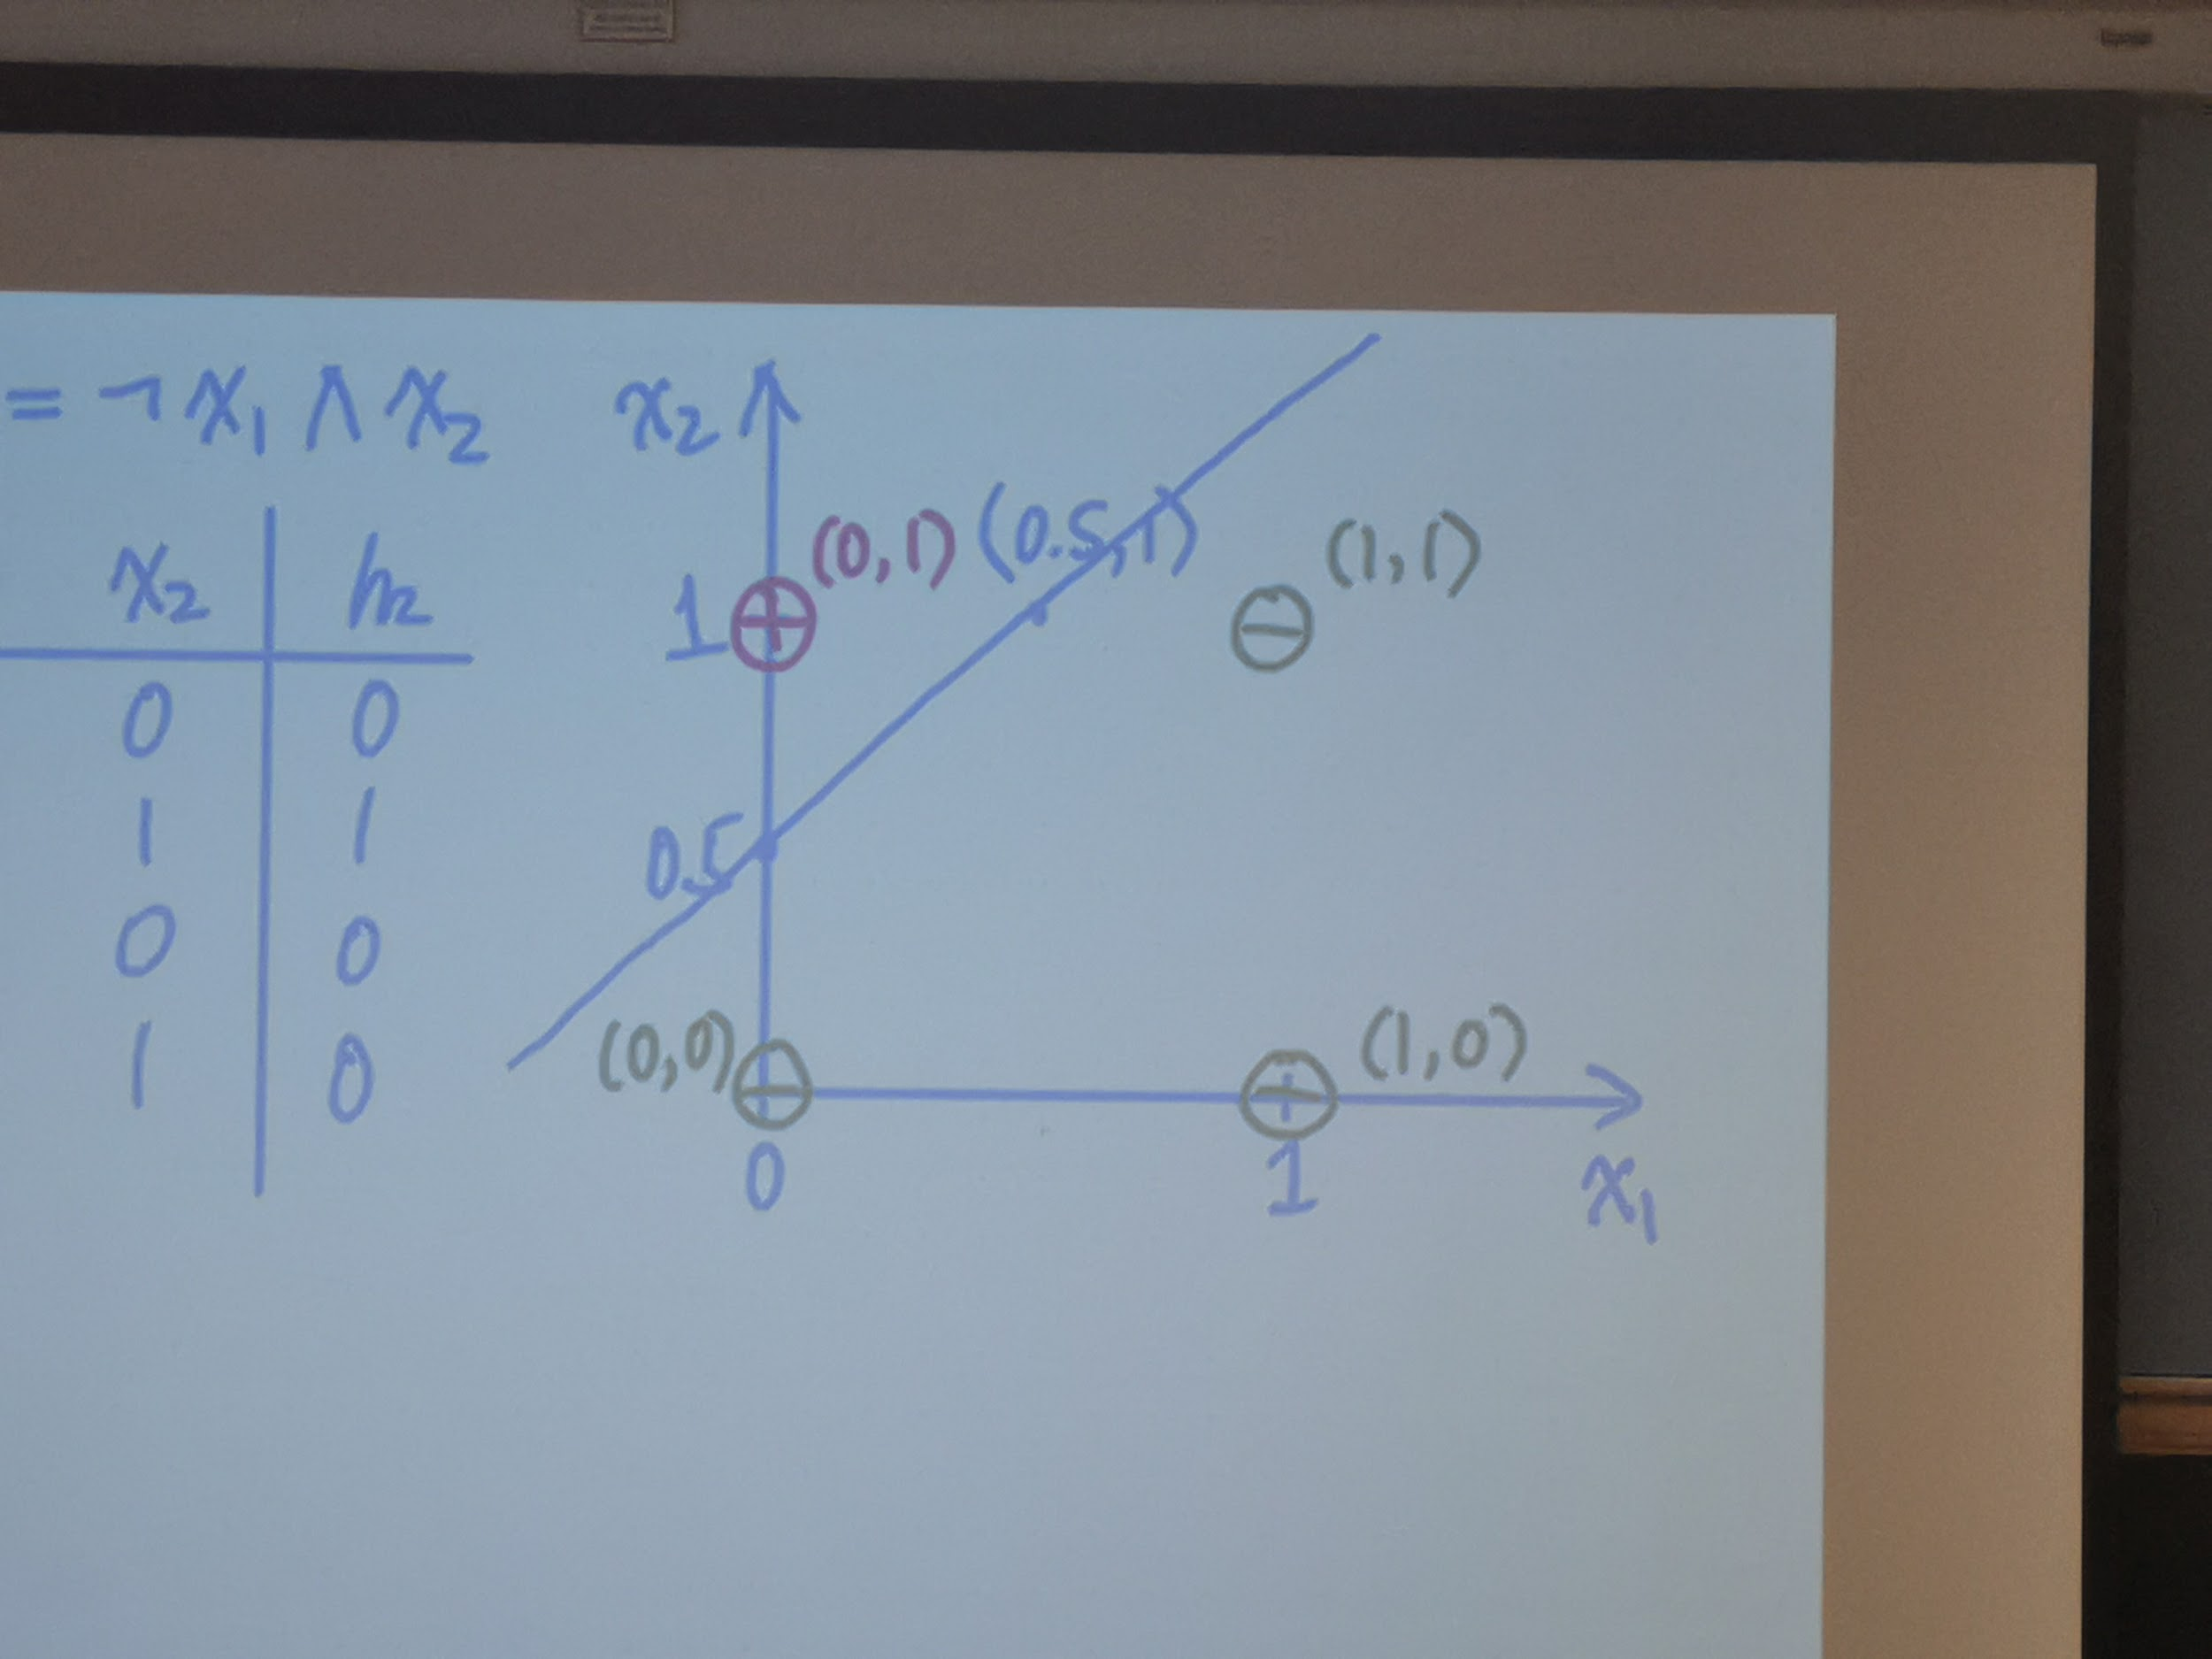 = ¬ x₁ ∧ x₂
x₂ h₂
0 0
1 1
0 0
1 0
x₂
(0,1) (0.5,1) (1,1)
1
0.5
(0,0) (1,0)
0 1 x₁